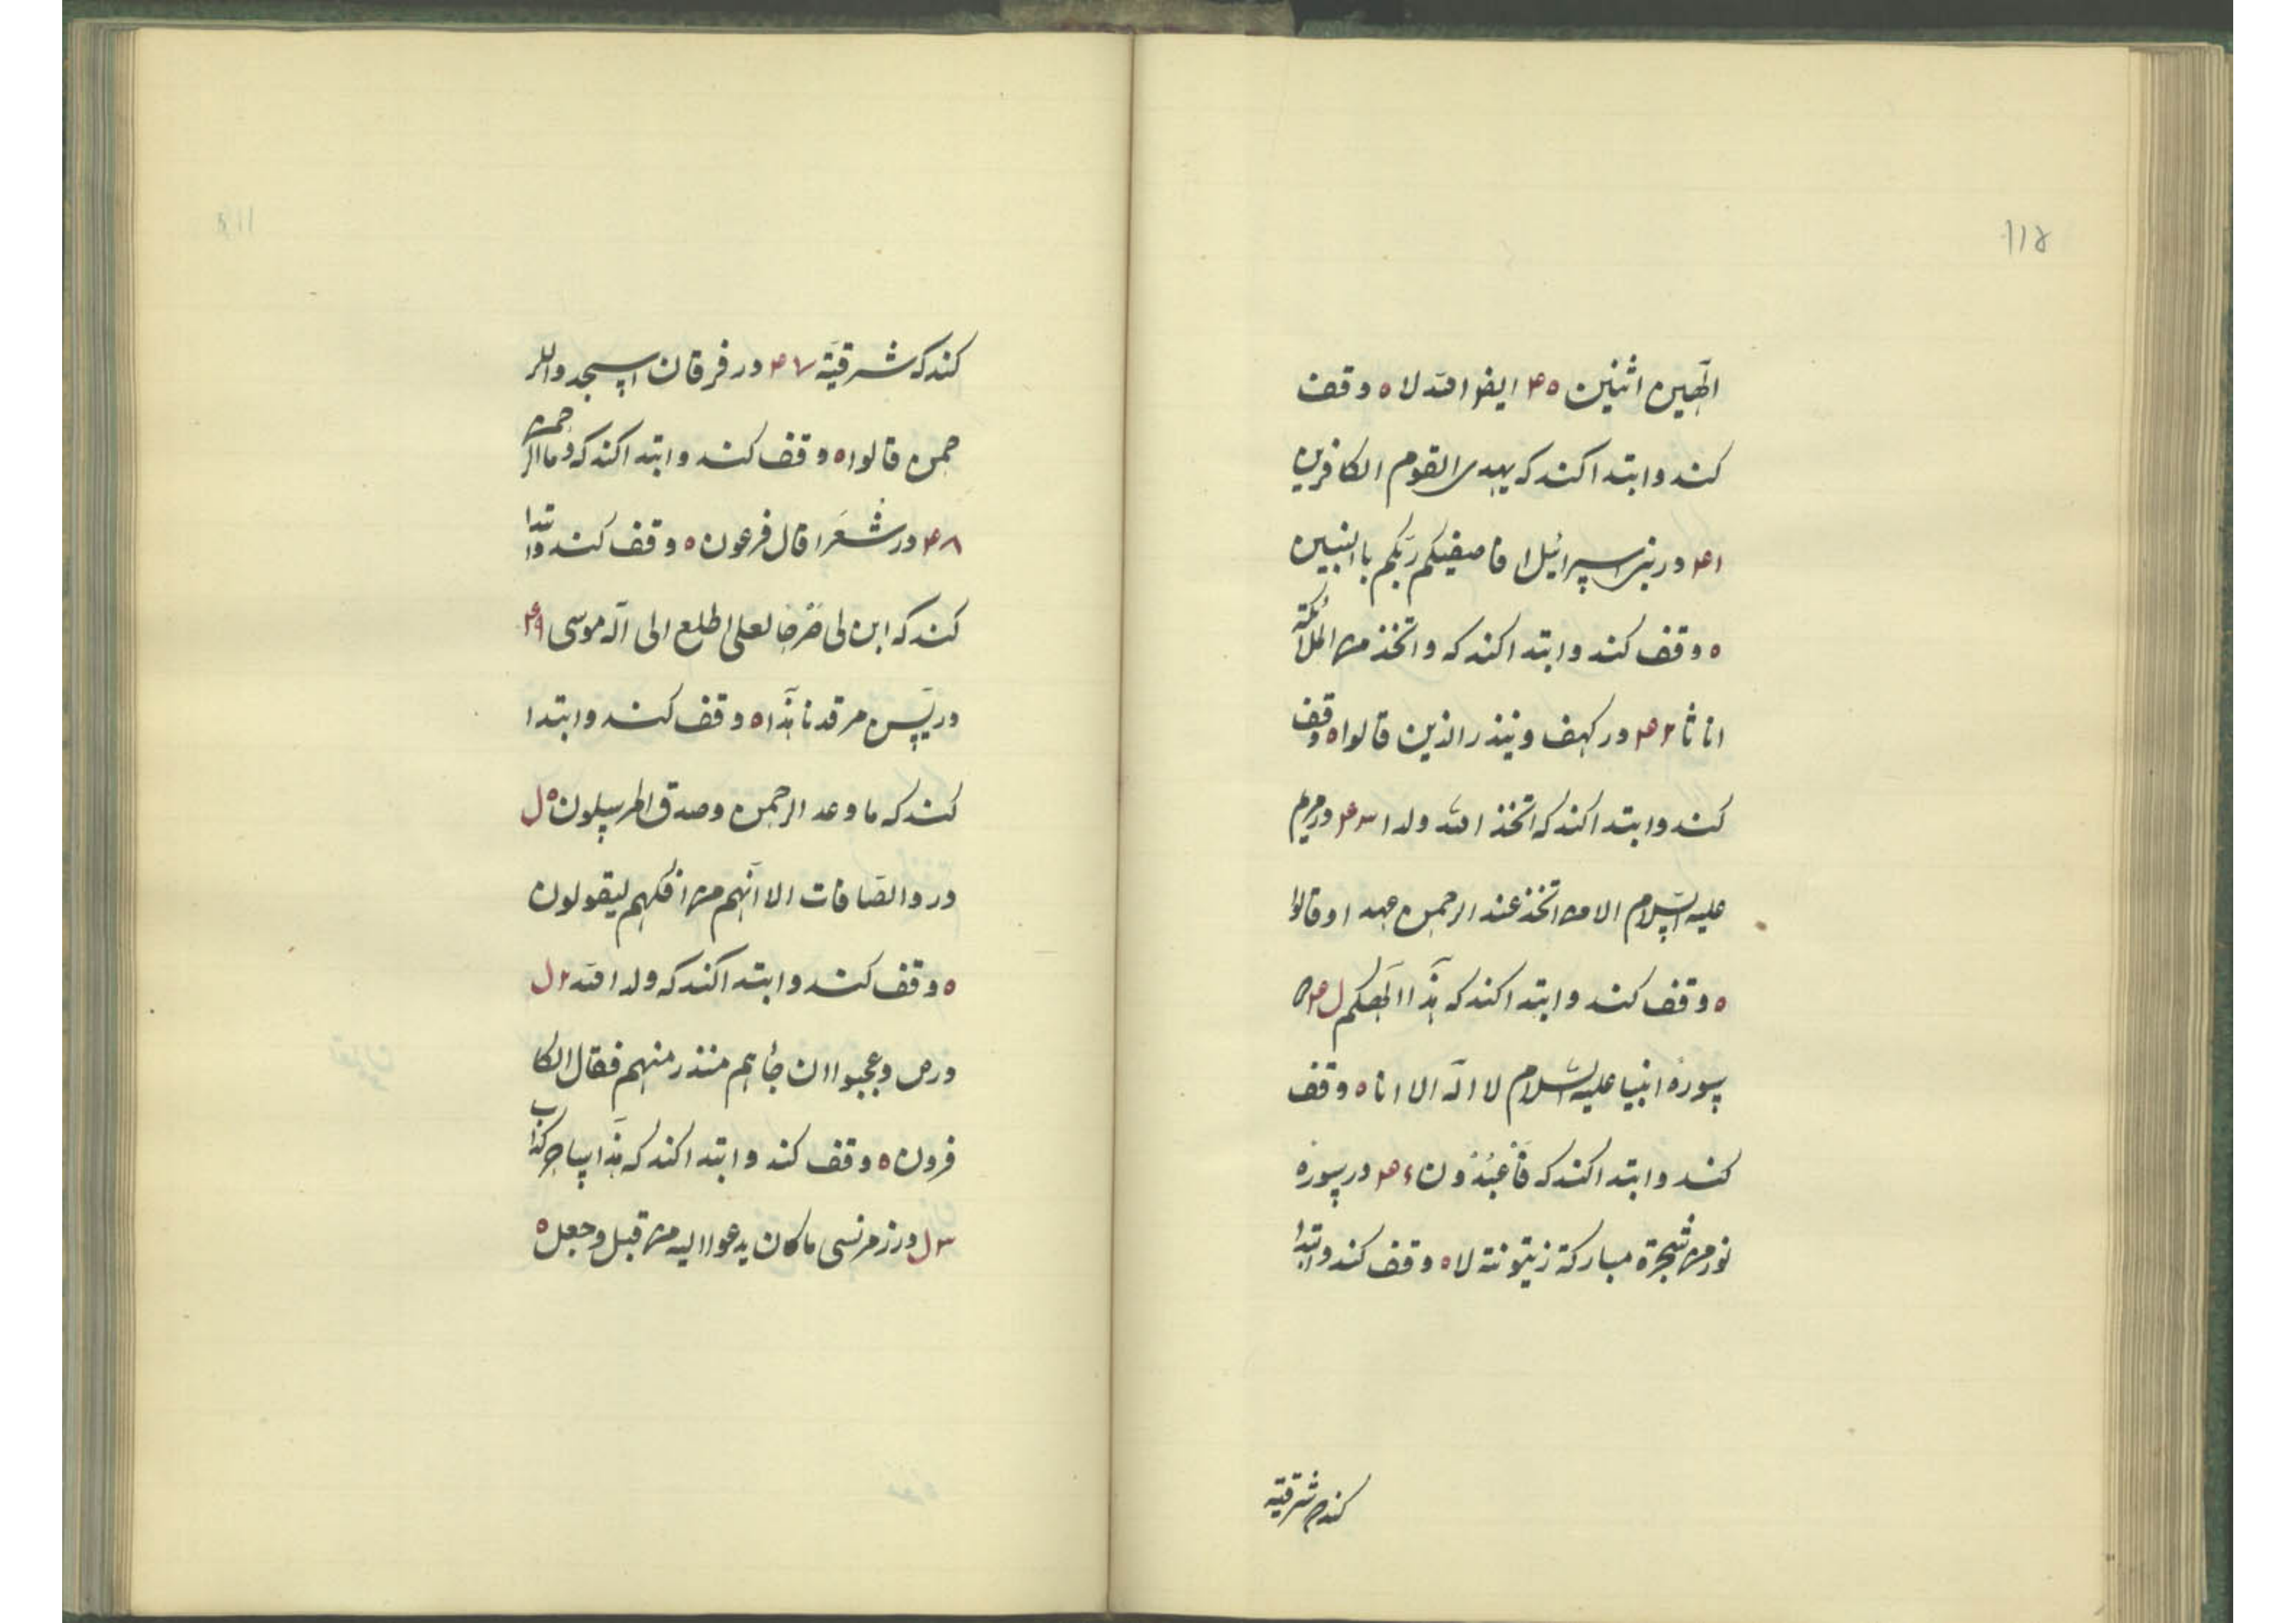 ۱۱۵
الٓهین اثنین ۴۵ ایضو اقد لا ه وقف
کند و ابتدا کند که یهدی القوم الکافرین
۴۱ در بنی اسرائیل افاصفیکم ربّکم باالبنین
ه وقف کند و ابتدا کند که و اتخذ من الملائکة
اناثا ۴۲ در کهف و ینذر الذین قالوا ه وقف
کند و ابتدا کند که اتخذ الله ولدا ۴۳ در مریم
علیه السّلام الا من اتخذ عند الرحمن عهدا و قالوا
ه وقف کند و ابتدا کند که هٰذا الٓهکم
سورهٔ انبیا علیه السلام لا الٓه الا انا ه وقف
کند و ابتدا کند که فَاعْبُدُون ۴۶ در سوره
نور من شجرة مبارکة زیتونة لا ه وقف کند و ابتدا
کند که شرقیة
کند که شرقیّة ۴۷ در فرقان اسجدوا للر
حمن قالوا ه وقف کند و ابتدا کند که و ما الرحمن
۴۸ در شعَرا قال فرعون ه وقف کند و ابتدا
کند که ابن لی صَرْحا لعلی اطلع الی الٓه موسی ۴۹
در یٰس من مرقدنا هٰذا ه وقف کند و ابتدا
کند که ما وعد الرحمن و صدق المرسلون ه ل
در والصّافات الا انّهم من افکهم لیقولون
ه وقف کند و ابتدا کند که ولد الله ۲ ل
در ص و عجبوا ان جٔاهم منذر منهم فقال الکا
فرون ه وقف کند و ابتدا کند که هٰذا ساحر کذاب
۳ ل در زمر نسی ما کان یدعوا الیه من قبل و جعل ه